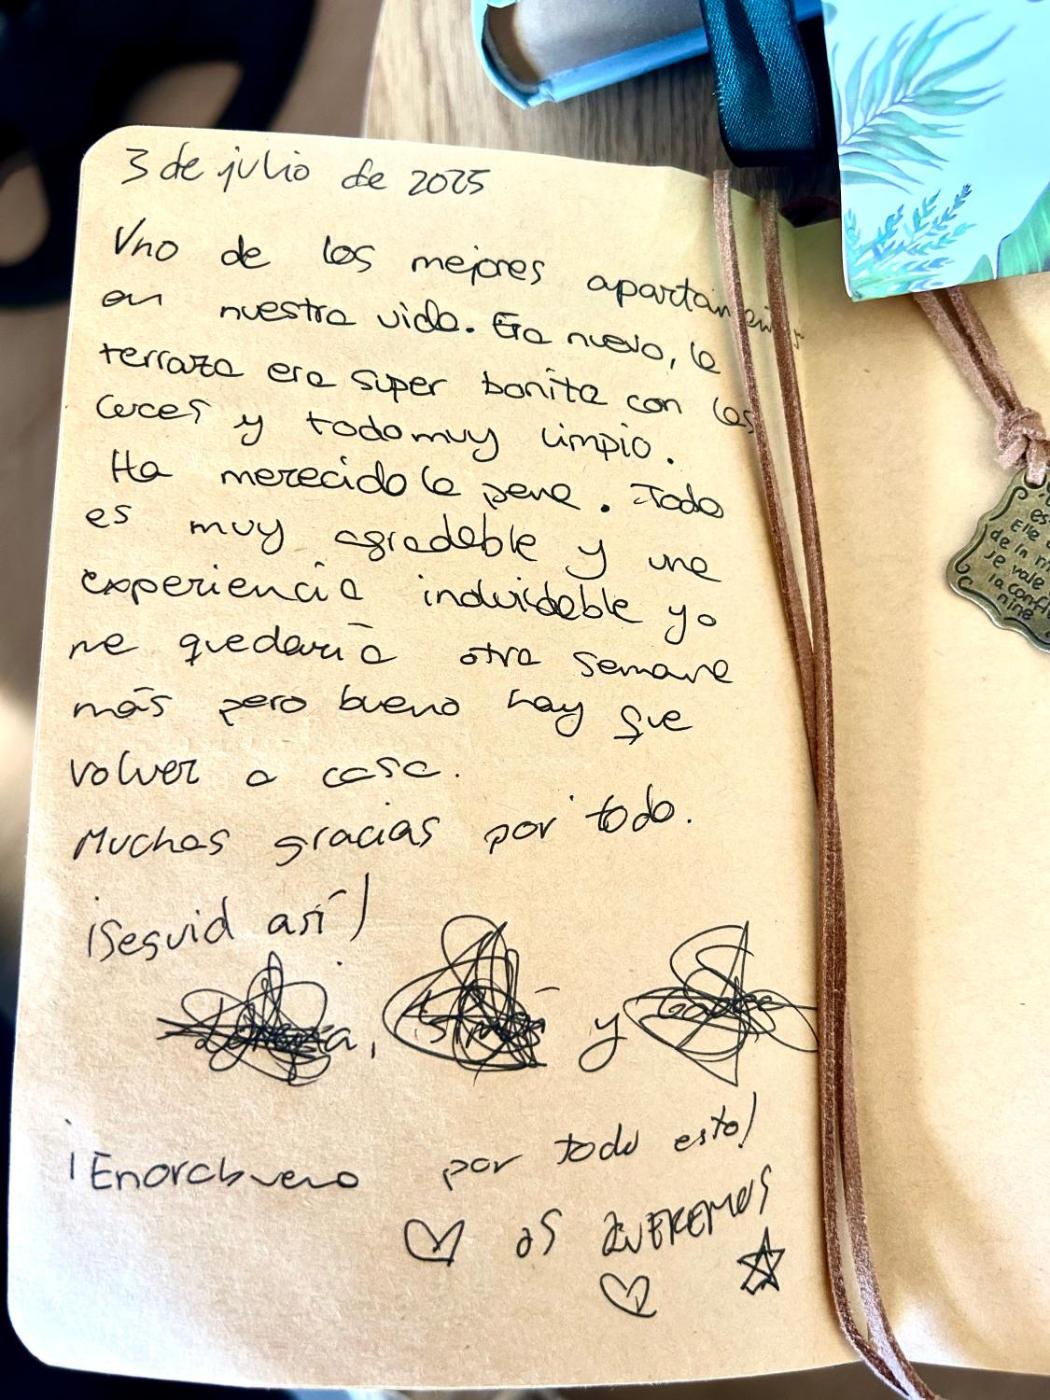 3 de julio de 2025
Uno de los mejores apartamentos
en nuestra vida. Era nuevo, la
terraza era super bonita con las
luces y todo muy limpio.
Ha merecido la pena. Todo
es muy agradable y una
experiencia induidable yo
me quedaría otra semana
más pero bueno hay que
volver a casa.
Muchas gracias por todo.
¡Seguid así!
y
¡Enorabuena por todo esto!
OS QUEREMOS
es
Elle
de la
je vale
la confi
mine